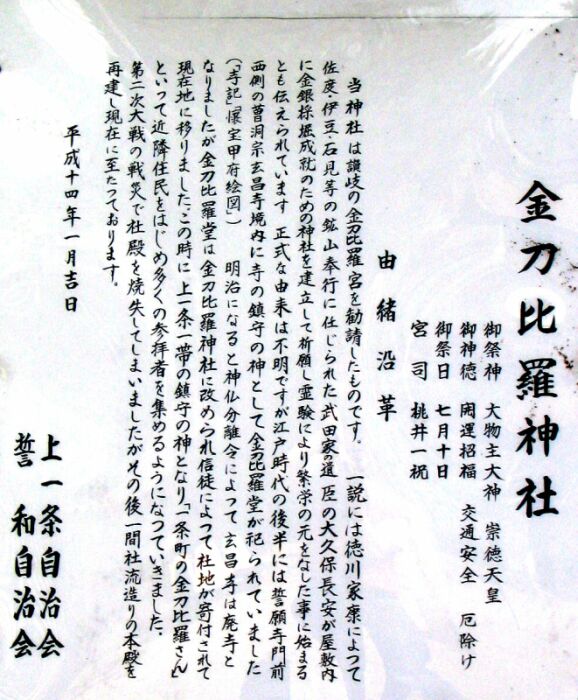 金刀比羅神社
御祭神 大物主大神 崇徳天皇
御神徳 開運招福 交通安全 厄除け
御祭日 七月十日
宮司 桃井一祝
由緒沿革
当神社は讃岐の金刀比羅宮を勧請したものです。 一説には徳川家康によって
佐度・伊豆・石見等の鉱山奉行に任じられた武田家の遺臣の大久保長安が屋敷内
に金銀採掘成就のための神社を建立して祈願し霊験により繁栄の元をなした事に始まる
とも伝えられています 正式な由来は不明ですが江戸時代の後半には誓願寺門前
西側の曹洞宗玄昌寺境内に寺の鎮守の神として金刀比羅堂が祀られていました
(「寺記」「懐宝甲府絵図」) 明治になると神仏分離令によって玄昌寺は廃寺と
なりましたが金刀比羅堂は金刀比羅神社に改められ信徒によって社地が寄付されて
現在地に移りました、この時に上一条一帯の鎮守の神となり「一条町の金刀比羅さん」
といって近隣住民をはじめ多くの参拝者を集めるようになっていきました、
第二次大戦の戦災で社殿を焼失してしまいましたがその後一間社流造りの本殿を
再建し現在に至たっております。
平成十四年一月吉日
上一条自治会
誓和自治会